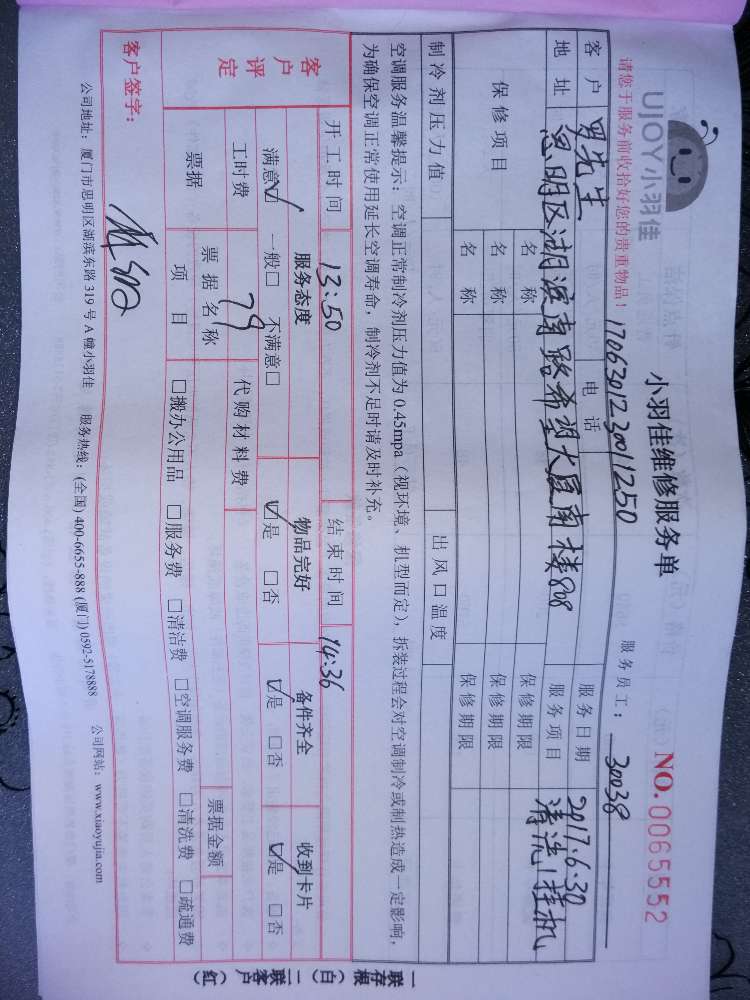 UJOY小羽佳
小羽佳维修服务单
NO. 0065552
请您于服务前收拾好您的贵重物品！
170630123001 1250
服务员工：30038
客户 男先生 电话 服务日期 2017.6.30
地址 思明区湖滨南路希望大厦南楼808 服务项目 清洗1挂机
保修项目 名称 保修期限
名称 保修期限
名称 保修期限
制冷剂压力值 出风口温度
空调服务温馨提示：空调正常制冷剂压力值为 0.45mpa（视环境、机型而定），拆装过程会对空调制冷或制热造成一定影响，
为确保空调正常使用延长空调寿命，制冷剂不足时请及时补充。
开工时间 13:50 结束时间 14:36
客户评定
服务态度 物品完好 备件齐全 收到卡片
满意☑ 一般□ 不满意□ ☑是 □否 ☑是 □否 ☑是 □否
工时费 79 代购材料费
票据 票据名称 票据金额
项目 □搬办公用品 □服务费 □清洁费 □空调服务费 □清洗费 □疏通费
客户签字：
公司地址：厦门市思明区湖滨东路 319 号 A 幢小羽佳 服务热线：(全国) 400-6655-888 (厦门) 0592-5178888 公司网站：www.xiaoyujia.com
一联存根（白） 二联客户（红）